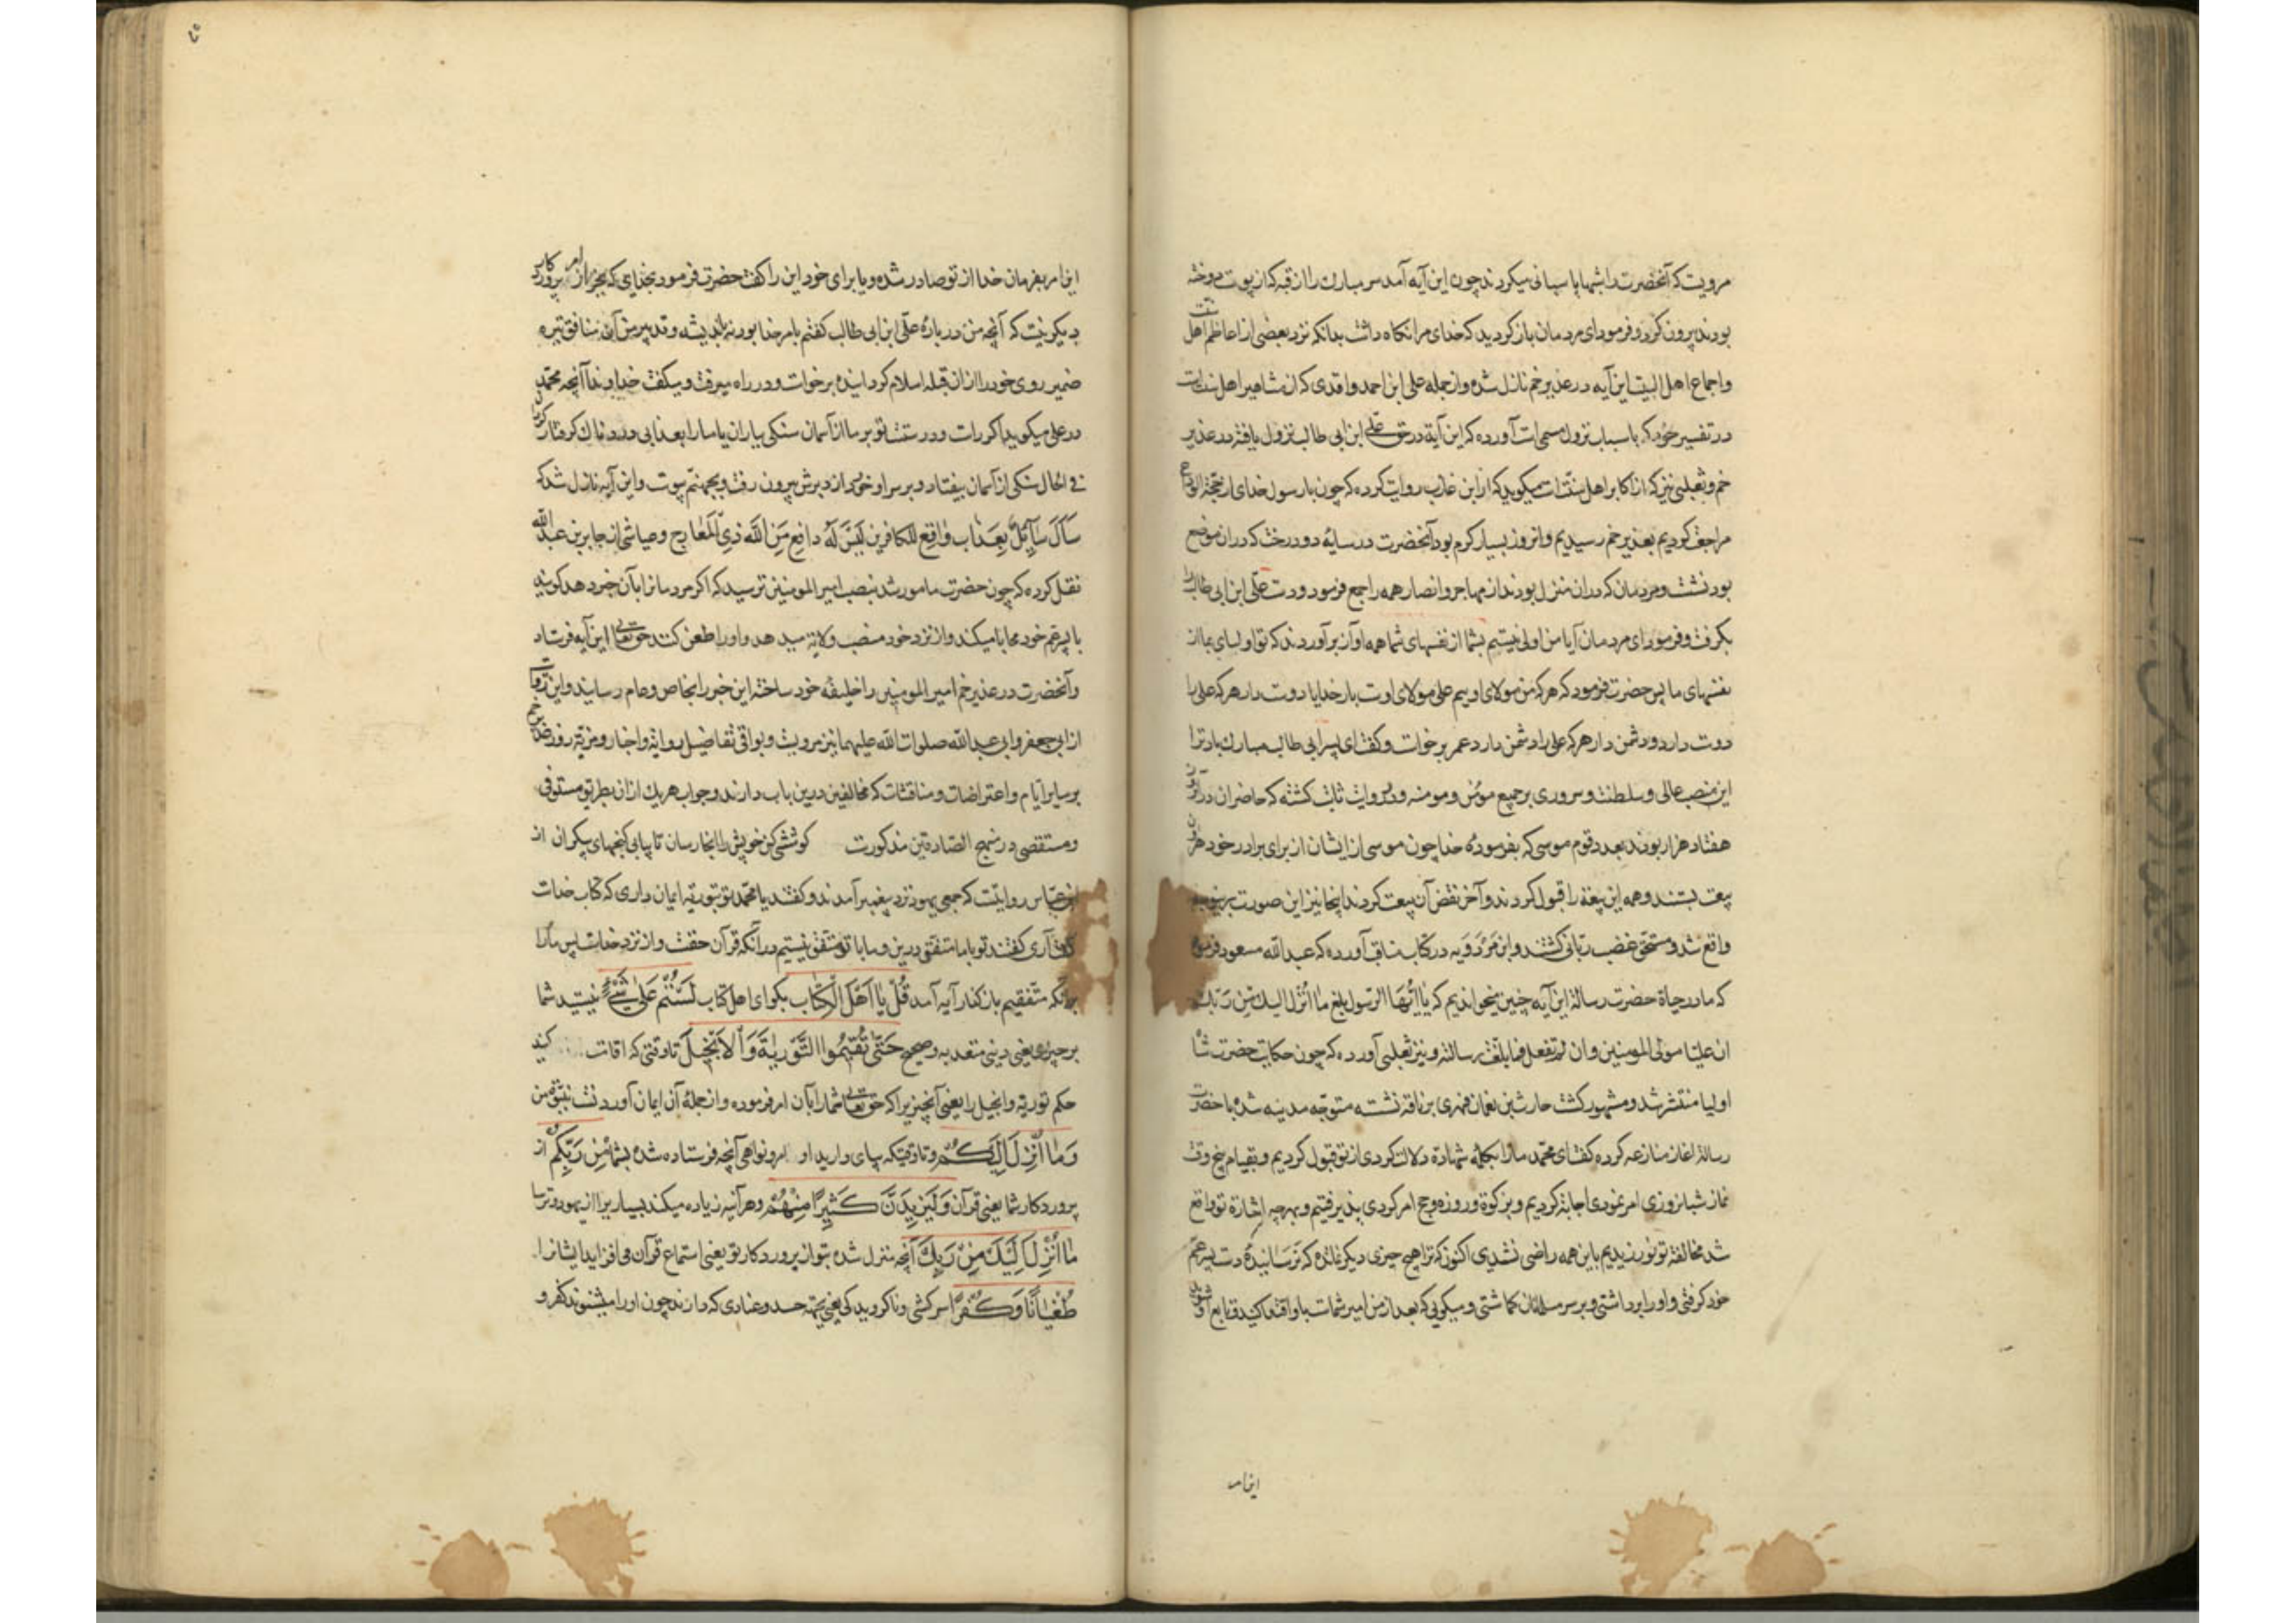 مرویست که آنحضرت را شبها پاسبانی میکردند چون این آیه آمد سر مبارک را از قبه که از پوست دوخته
بودند بیرون کرد و فرمود ای مردمان باز کردید که خدای مرا نکاه داشت بدانکه نزد بعضی از اعاظم اهل سنت
و اجماع اهل البیت این آیه در غدیر خم نازل شده و از جمله علی ابن احمد واقدی که از مشاهیر اهل سنت است
در تفسیر خود که باسباب نزول مسمی است آورده که این آیة در حق علی ابن ابی طالب نزول یافته در غدیر
خم و ثعلبی نیز که از اکابر اهل سنت است میکوید که از ابن عازب روایت کرده که چون با رسول خدای از حجة الوداع
مراجعت کردیم بغدیر خم رسیدیم و انروز بسیار کرم بود آنحضرت در سایهٔ دو درخت که در ان موضع
بود نشست و مردمان که در ان منزل بودند از مهاجر و انصار همه را جمع فرمود و دست علی ابن ابی طالب را
بکرفت و فرمود ای مردمان آیا من اولی نیستم بشما از نفسهای شما همه اواز برآوردند که تو اولی بما از
نفسهای ما پس حضرت فرمود که هر که من مولای اویم علی مولای اوست بار خدایا دوست دار هر که علی را
دوست دارد و دشمن دار هر که علی را دشمن دارد عمر برخاست و کفت ای پسر ابی طالب مبارک باد ترا
این منصب عالی و سلطنت و سروری بر جمیع مؤمن و مومنه و بروایت ثابت کشته که حاضران در آنروز
هفتاد هزار بودند بعدد قوم موسی که بفرمودهٔ خدا چون موسی از ایشان از برای برادر خود هرون
بیعت بستند و همه این بیعة را قبول کردند و آخر نقض آن بیعت کردند اینجا نیز این صورت
واقع شد و مستحق غضب ربانی کشتند و ابن مردویه در کتاب مناقب آورده که عبد الله مسعود فرمود
که ما در حیاة حضرت رسالة این آیه چنین میخواندیم که یا ایها الرسول بلغ ما انزل الیک من ربک
ان علیا مولی المومنین و ان لم تفعل فما بلغت رسالته و نیز ثعلبی آورده که چون حکایت حضرت شاه
اولیا منتشر شد و مشهور کشت حارث بن نعمان فهری بر ناقه نشسته متوجه مدینه شده با حضرت
رسالة اغاز منازعه کرده کفت ای محمد ما را بکلمه شهادة دلالت کردی از تو قبول کردیم و بقیام پنج وقت
نماز شبانروزی امر نمودی اجابة کردیم و بزکوة و روزه و حج امر کردی پذیرفتیم و بهر چه اشارة تو واقع
شد مخالفة تو نورزیدیم باین همه راضی نشدی اکنون که ترا هیچ چیزی دیکر نمانده که نرسانیدهٔ دست پسر عم
خود کرفتی و او را برداشتی و بر سر مسلمانان کماشتی و میکویی که بعد از من امیر شماست باو اقتدا کنید و تابع او شوید
اینامر
این امر بفرمان خدا از تو صادر شده و یا برای خود این را کفت حضرت فرمود بخدای که بجز از امر پروردکار
دیکر نیست که آنچه من در بارهٔ علی ابن ابی طالب کفتم بامر خدا بود نه باندیشه و تدبیر من آن منافق تیره
ضمیر روی خود را از ان قبله اسلام کردانیده برخواست و در راه میرفت و میکفت خداوندا آنچه محمد
در علی میکوید اکر راست و درستست تو بر ما از آسمان سنکی بباران یا ما را بعذابی دردناک کرفتار کردان
فی الحال سنکی از آسمان بیفتاد و بر سر او خورد از دبرش بیرون رفت و بجهنم پیوست و این آیه نازل شد که
سَأَلَ سَآئِلٌ بِعَذَابٍ وَاقِعٍ لِلكافرین لَیْسَ لَهُ دافِع مِنَ اللَّه ذِی المَعارِج و عیاشی از جابر بن عبد الله
نقل کرده که چون حضرت مامور شد بنصب امیر المومنین ترسید که اکر مردمانرا بآن خبر دهد کویند
با پسر عم خود محابا میکند و از نزد خود منصب ولایة میدهد و او را طعن کنند حق تعالی این آیه فرستاد
و آنحضرت در غدیر خم امیر المومنین را خلیفه خود ساخته این خبر را بخاص و عام رسانید و این روایت
از ابی جعفر و ابی عبد الله صلوات الله علیهما نیز مرویست و بواقی تفاصیل روایة و اخبار و مزیة روز غدیر خم
بر سایر ایام و اعتراضات و مناقشات که مخالفین درین باب دارند و جواب هر یک از ان بطریق مستوفی
و مستقصی در منهج الصادقین مذکورست کوششی کن خویش را انجا رسان تا بیابی کنجهای بیکران از
ابن عباس روایتست که جمعی یهود نزد پیغمبر آمدند و کفتند یا محمد تو بتوریة ایمان داری که کتاب خداست
کفت آری کفتند تو با ما متفقی درین و ما با تو متفق نیستیم در آنکه قرآن حقست و از نزد خداست پس ما را
بآنکه متفقیم بازکذار آیه آمد قُلْ یَا أَهْلَ الْکِتَابِ بکو ای اهل کتاب لَسْتُمْ عَلَی شَیْءٍ نیستید شما
بر چیزی یعنی دینی معتد به و صحیح حَتَّی تُقِیمُوا التَّوْرَیةَ وَالْاِنْجِیلَ تا وقتی که اقامت کنید
حکم توریة و انجیل را یعنی آنچیزی را که حق تعالی شما را بآن امر فرموده و از جملهٔ آن ایمان آوردنست بنبوة من
وَمَا أُنْزِلَ إِلَیْکُمْ و تا وقتیکه بپای دارید او امر و نواهی آنچه فرستاده شده بشما مِنْ رَبِّکُمْ از
پروردکار شما یعنی قرآن وَلَیَزِیدَنَّ کَثِیرًا مِنْهُمْ و هر آینه زیاده میکند بسیاریرا از یهود و ترسا
مَا أُنْزِلَ إِلَیْکَ مِنْ رَبِّکَ آنچه منزل شده بتو از پروردکار تو یعنی استماع قرآن می افزاید ایشانرا
طُغْیَانًا وَکُفْرًا سرکشی و ناکرویدکی یعنی بجهة حسد و عنادی که دارند چون او را میشنوند کفر و